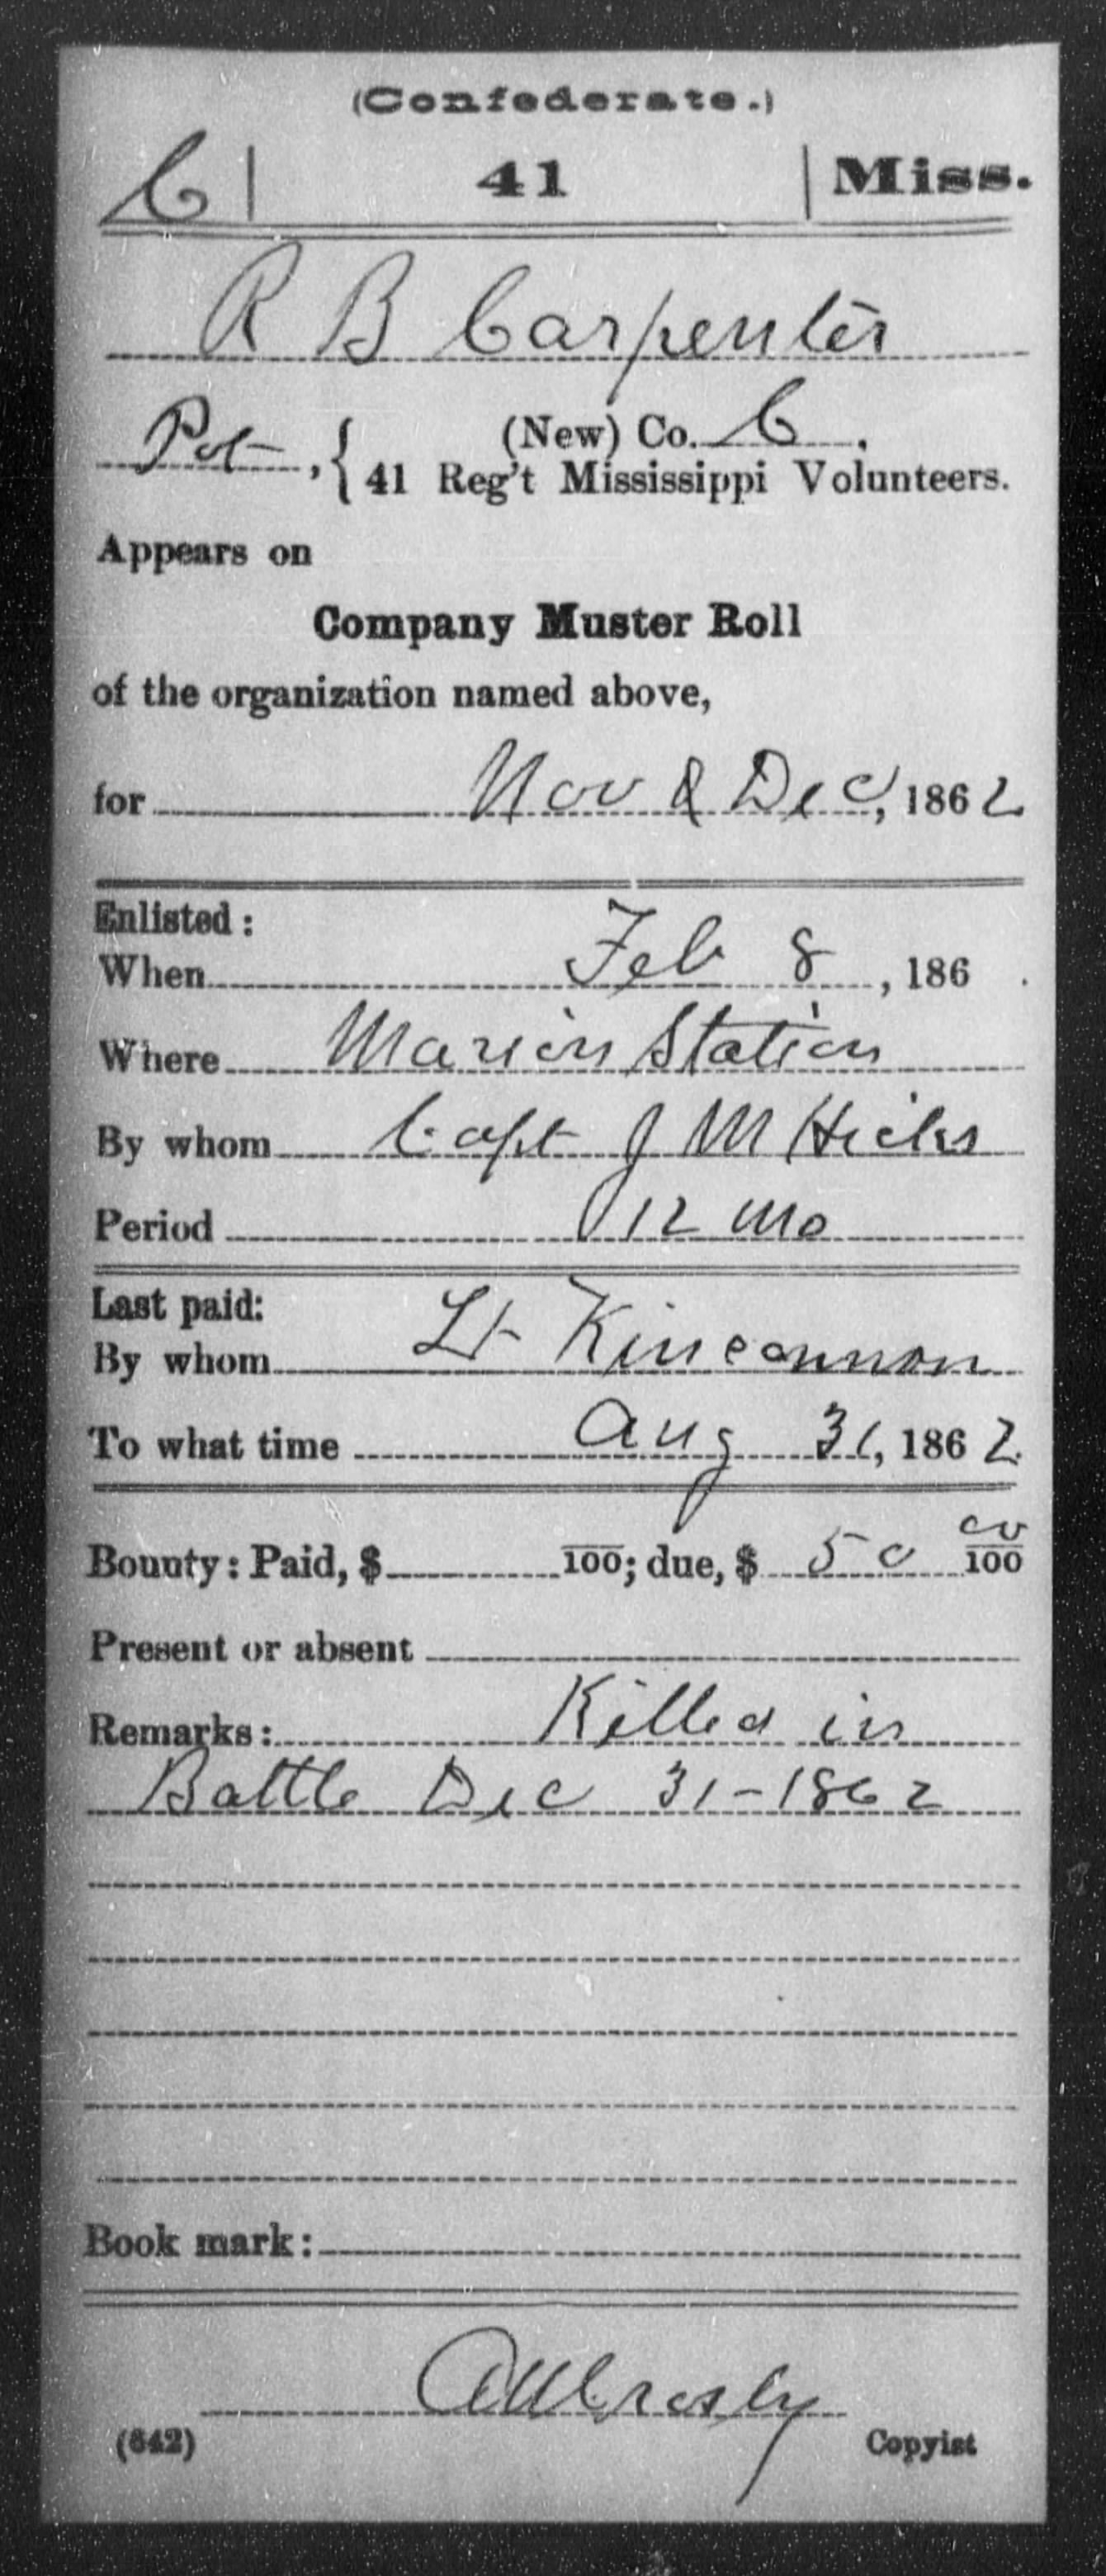 (Confederate.)
C | 41 | Miss.
R B Carpenter
Pvt, { (New) Co. C.
41 Reg't Mississippi Volunteers.
Appears on
Company Muster Roll
of the organization named above,
for Nov & Dec, 1862
Enlisted:
When Feb 8, 186 .
Where Marion Station
By whom Capt J M Hicks
Period 12 mo
Last paid:
By whom Lt Kincannon
To what time Aug 31, 1862
Bounty: Paid, $ 100; due, $ 50 00/100
Present or absent
Remarks: Killed in
Battle Dec 31-1862
Book mark:
Crosby
(642) Copyist